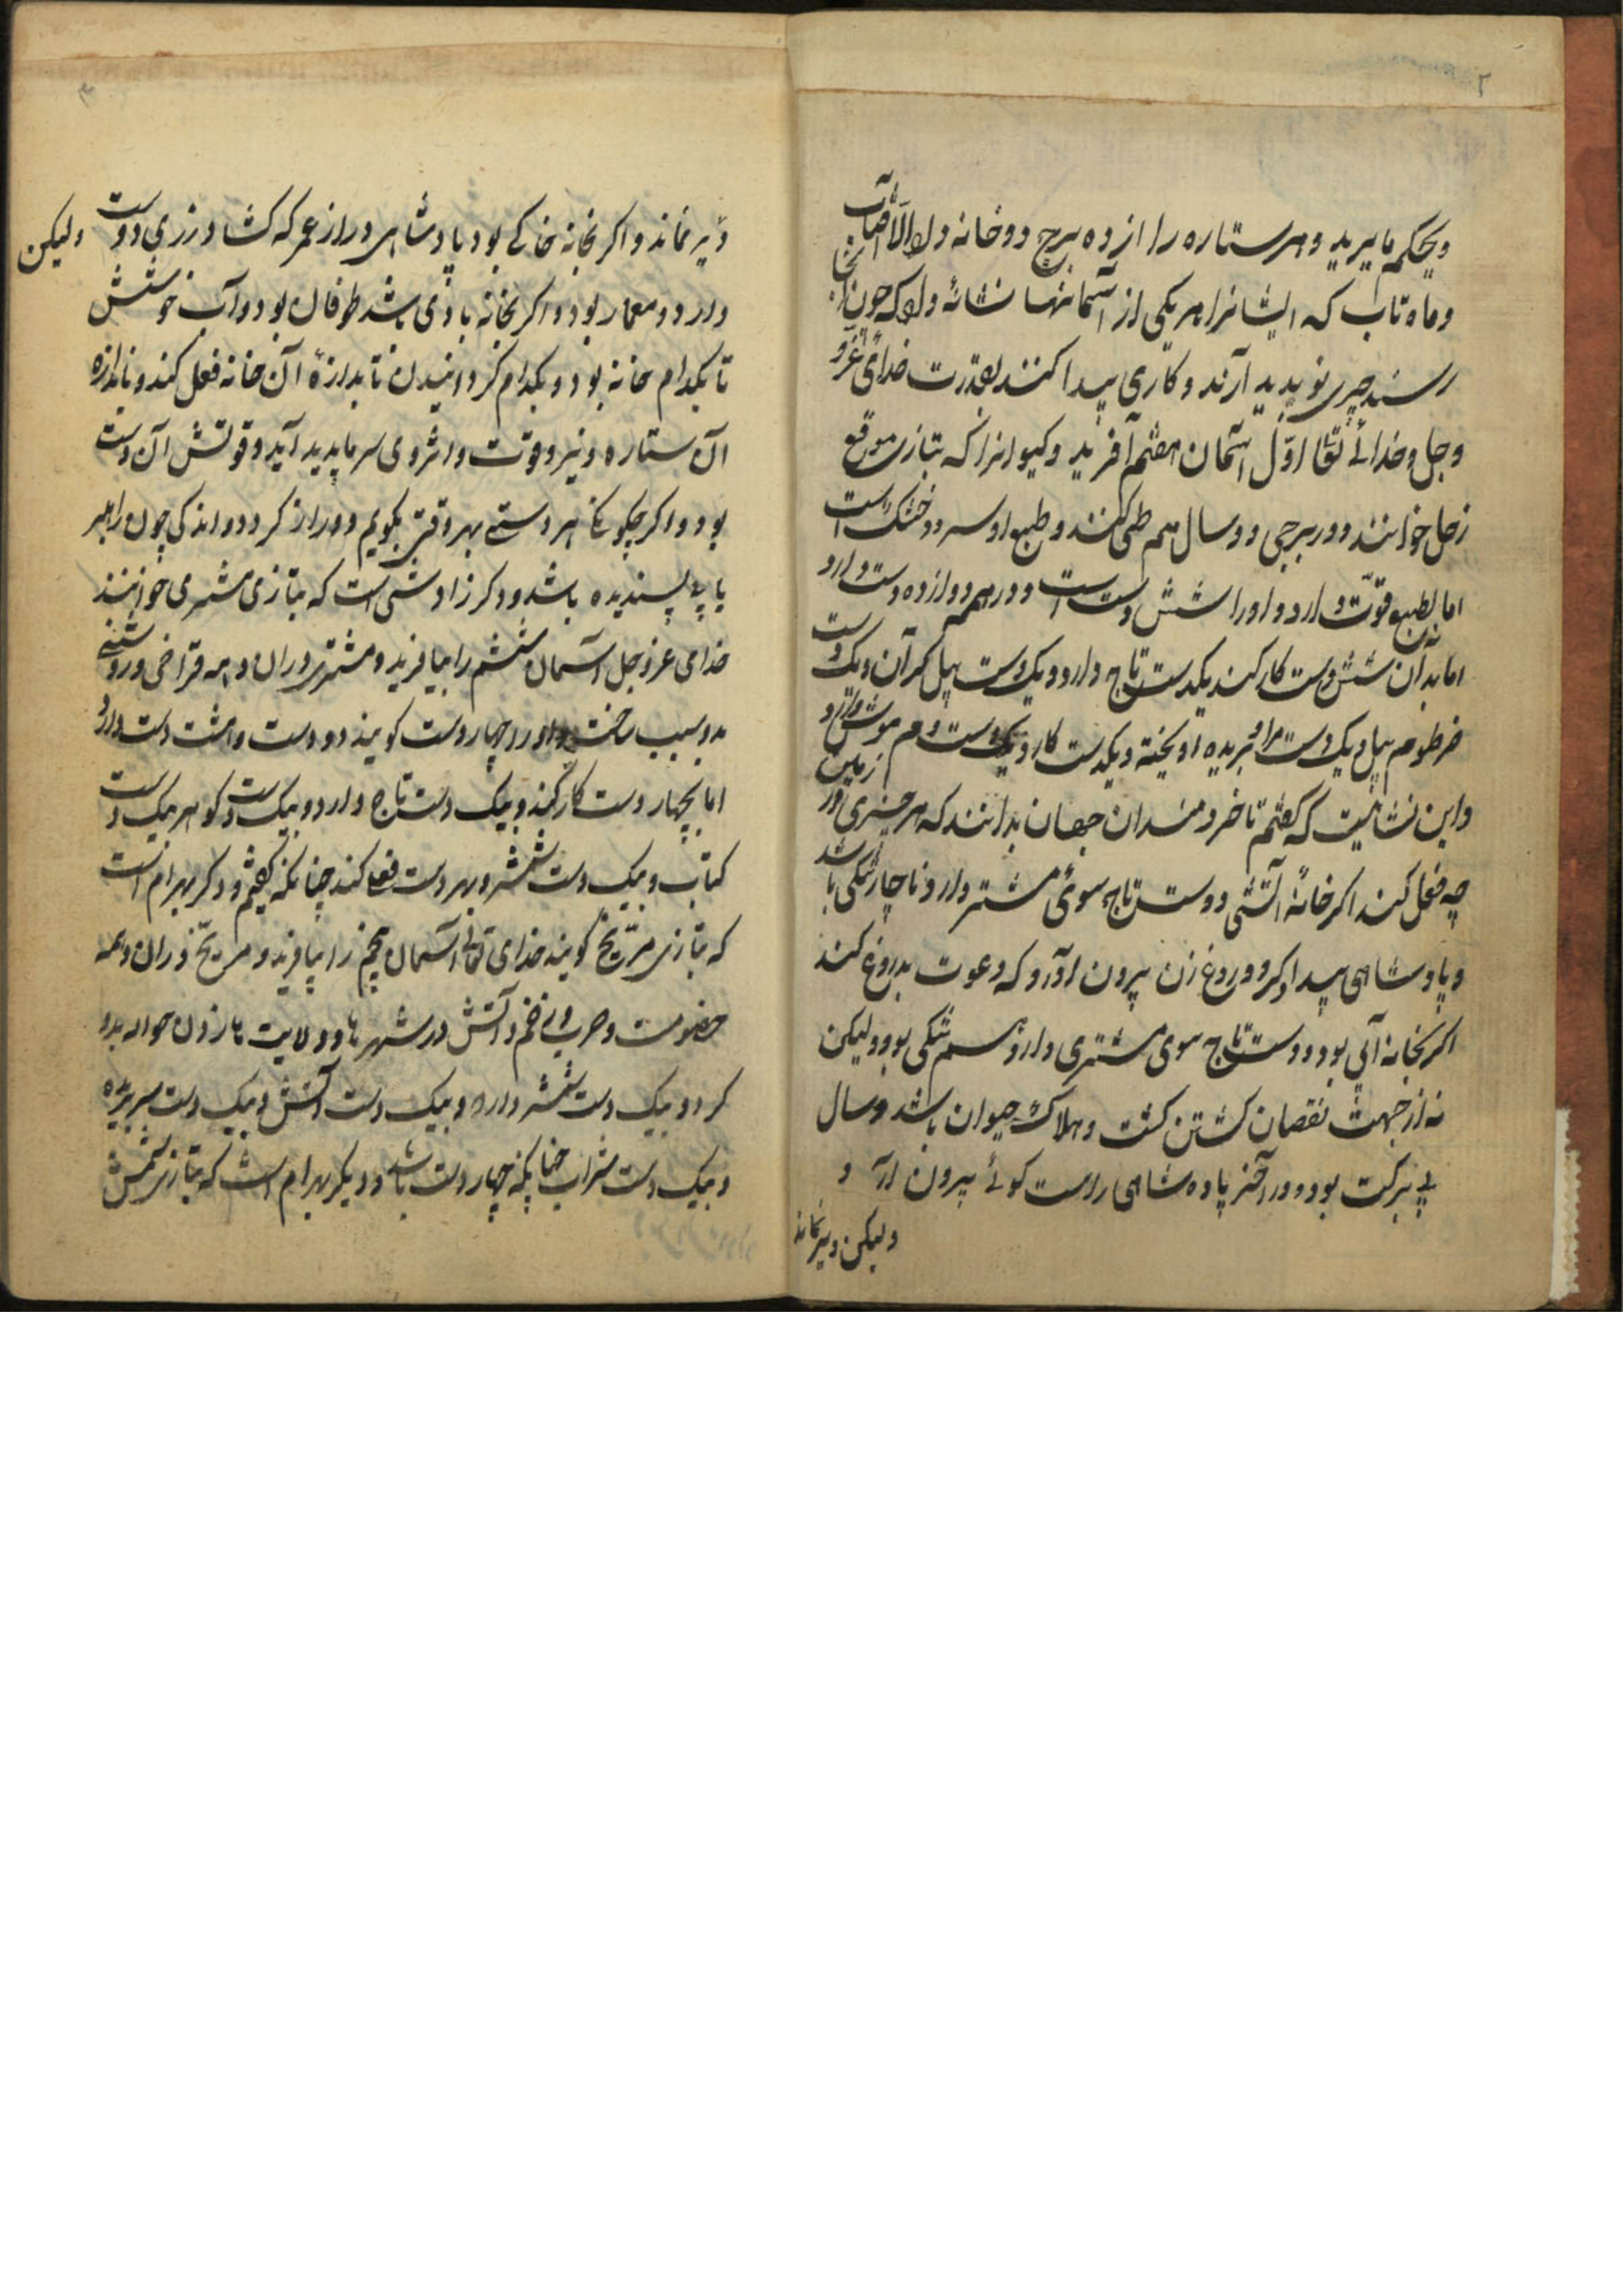 ۲
و بحکم ما یرید و هر ستاره را از ده برج دو خانه داد الا آفتاب
و ماه تاب که ایشانرا هر یکی از آسمانها نشانهٔ داد که چون آنجا
رسند چیزی نو پدید آرند و کاری پیدا کنند بقدرت خدائی عز و
و جل و خدائے تعالی اوّل آسمان هفتم آفرید و کیوانرا که بتازی موقع
زحل خوانند و در برجی دو سال هم طی کنند و طبع او سرد و خشک است
اما بطبع قوّت دارد و او را شش دست است و در همه دوازده دست دارد
اما بدان شش دست کار کند یکدست تاج دارد و یکدست پیل کم آن و یک دست
خرطوم پیل و یک دست مرد سر بریده آویخته و یکدست کارد و یکدست دم موش دارد
و این نشانیست که گفتم تا خردمندان جهان بدانند که هر چیزی در زمین
چه فعل کند اگر خانهٔ آتشی دوست تاج سوئ مشتری دارد ناچار تنگی باشد
و پادشاهی پیدا کرد و دروغ زن بیرون آورد که دعوت بدروغ کند
اگر بخانه آبی بود و دست تاج سوی مشتری دارد سم تنگی بود و لیکن
نه از جهت نقصان کشتن کشت و هلاک حیوان باشد و سال
بی برکت بود و در آخر پادشاهی راست گوئے بیرون آرد و
و لیکن دیر نماند
۳
دیر نماند و اگر بخانه خاکے بود پادشاهی دراز عمر که کشاورزی دوست ولیکن
دارد و معمار بود و اگر بخانه بادی باشد طوفان بود و آب خوشش
تا بکدام خانه بود و بکدام گردانیدن تا بدازهٔ آن خانه فعل کند و باندازه
آن ستاره و نیرو قوت و اثر وی سرما پدید آید و قوتش آن دست
بود و اگر بگویم هر دستے بهر وقتی بگویم دراز گردد و اندکی چون راهبر
یا پے پسندیده باشد و دگر زادشی است که بتازی مشتری خوانند
خدای عز و جل آسمان ششم را بیافرید و مشتری در آن و همه فراخی و روشنی
بدو سبب ساخت و او را چهار دست گویند دو دست و هشت دست دارد
اما بچهار دست کار کند و بیک دست تاج دارد و بیک دست گوهر بیک دست
کتاب و بیک دست شمشیر و بهر دست فعل کند چنانکه گفتم و دگر بهرام است
که بتازی مرّیخ گویند خدای تعالی آسمان پنجم را بیافرید و مریخ در آن و همه
خصومت و حرب و زخم و آتش در شهرها و ولایت ها از آن حواله بدو
کرد و بیک دست شمشیر دارد و بیک دست آتش و بیک دست سر بریده
و بیک دست شراب چنانکه چهار دست باشد و دیگر بهرام است که بتازی شمس